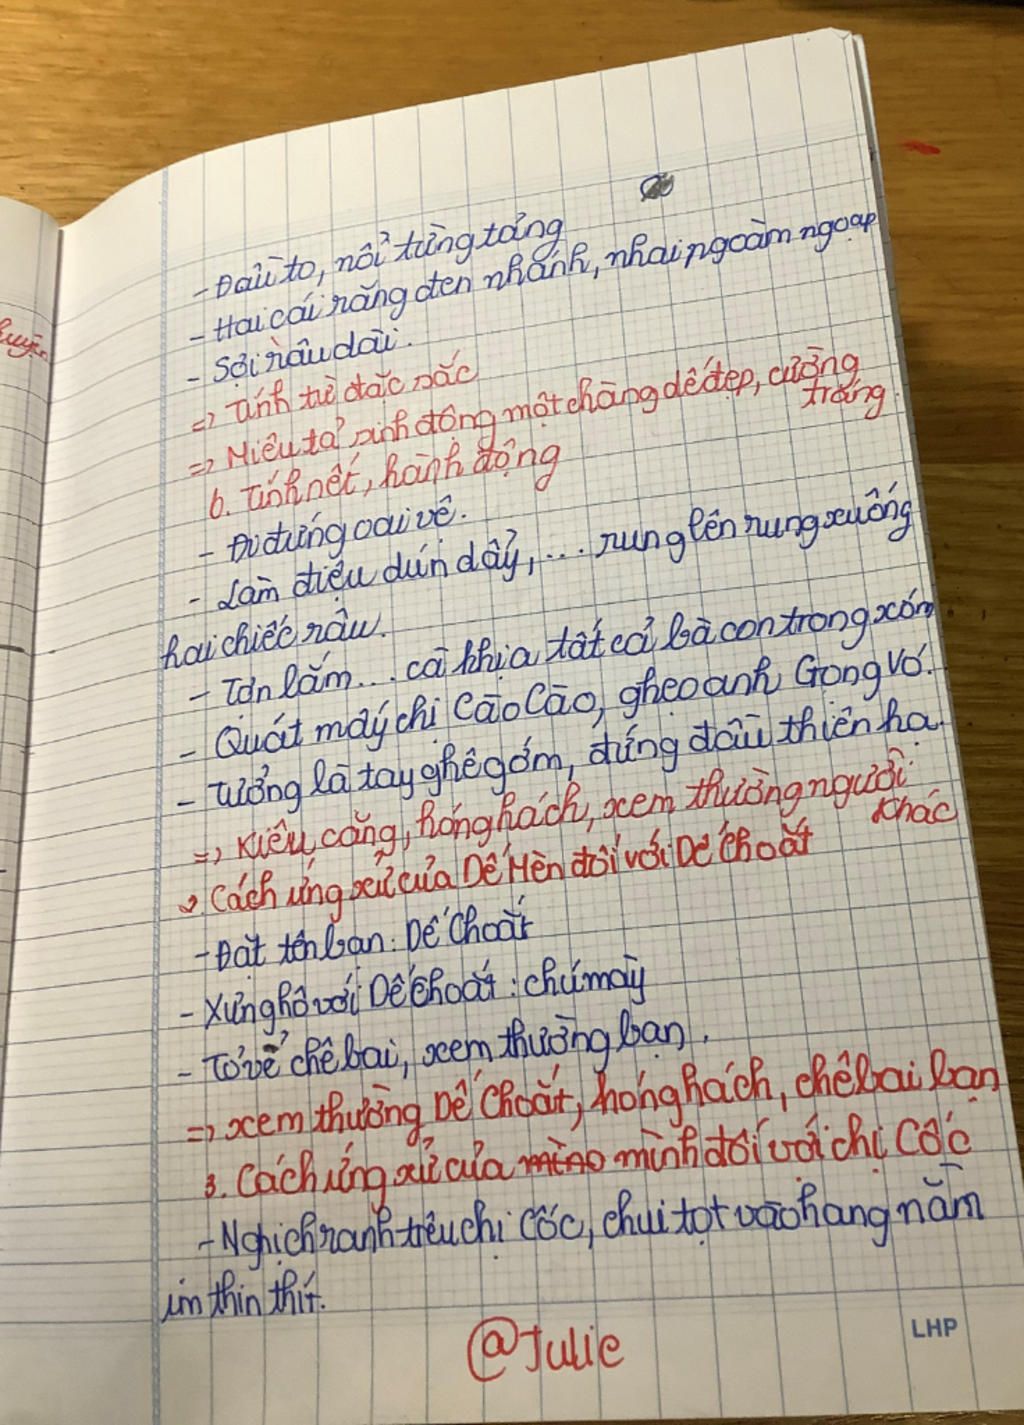 - Đầu to, nổi từng tảng
- Hai cái răng đen nhánh, nhai ngoàm ngoạp
- Sợi râu dài.
=> Tính từ đặc sắc
=> Miêu tả sinh động một chàng dế đẹp, cường
tráng.
b. Tính nết, hành động
- Đi đứng oai vệ.
- Làm điệu dún dẩy, ... rung lên rung xuống
hai chiếc râu.
- Tợn lắm... cà khịa tất cả bà con trong xóm
- Quát mấy chị Cào Cào, ghẹo anh Gọng Vó.
- Tưởng là tay ghê gớm, đứng đầu thiên hạ.
=> Kiêu căng, hống hách, xem thường người
khác
2. Cách ứng xử của Dế Mèn đối với Dế Choắt
- Đặt tên bạn: Dế Choắt
- Xưng hô với Dế Choắt: chú mày
- Tỏ vẻ chê bai, xem thường bạn.
=> xem thường Dế Choắt, hống hách, chê bai bạn
3. Cách ứng xử của mình đối với chị Cốc
- Nghịch ranh trêu chị Cốc, chui tọt vào hang nằm
im thin thít.
@Julie
LHP